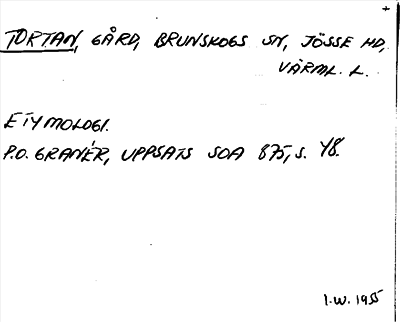 TORTAN, GÅRD, BRUNSKOGS SN, JÖSSE HD,
VÄRML. L.
ETYMOLOGI.
P.O. GRANÉR, UPPSATS SOA 875, S. 48.
I.W. 1955